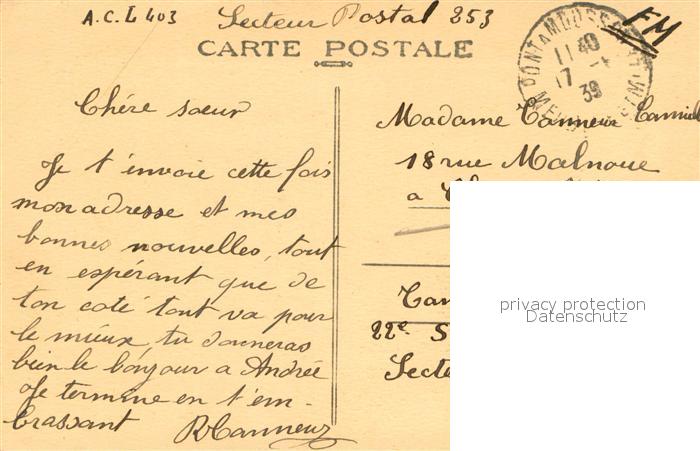 A.C.L 403 Secteur Postal 253
FM
CARTE POSTALE
PONT A MOUSSON
11 40
17
39
Chére soeur
Je t'envoie cette fois
mon adresse et mes
bonnes nouvelles, tout
en espérant que de
ton coté tout va pour
le mieux, tu donneras
bien le bonjour a Andrée
Je termine en t'em-
brassant
Madame Tanneur
18 rue Malnoue
a
22e S
Secte
privacy protection
Datenschutz